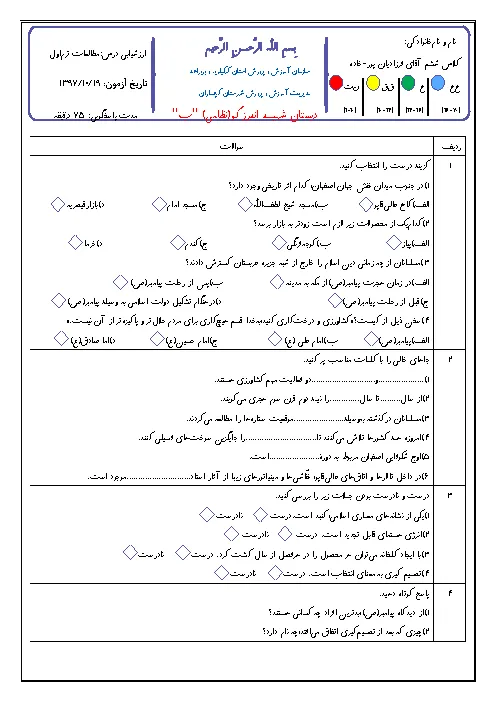 نام و نام خانوادگی:
کلاس ششم آقای فرزادیان پور - خاده
خ خ
خ
ق ق
ن ت
بسم الله الرّحمن الرّحیم
سازمان آموزش و پرورش استان
مدیریت آموزش و پرورش شهرستان
دبستان شهید (نظامی) "ب"
ارزشیابی درس: مطالعات ترم اول
تاریخ آزمون: ۱۳۹۷/۱۰/۱۹
مدت پاسخگویی: ۷۵ دقیقه
ردیف
سوالات
۱
گزینه درست را انتخاب کنید.
۱) در جنوب میدان نقش جهان اصفهان، کدام اثر تاریخی وجود دارد؟
الف) کاخ عالی قاپو ب) مسجد شیخ لطف الله ج) مسجد امام د) بازار قیصریه
۲) کدام یک از محصولات زیر لازم است زودتر به بازار برسد؟
الف) پیاز ب) گوجه فرنگی ج) گندم د) خرما
۳) مسلمانان از چه زمانی دین اسلام را خارج از شبه جزیره عربستان گسترش دادند؟
الف) در زمان هجرت پیامبر(ص) از مکه به مدینه ب) پس از رحلت پیامبر(ص)
ج) قبل از رحلت پیامبر(ص) د) در هنگام تشکیل دولت اسلامی به وسیله پیامبر(ص)
۴) سخن ذیل از کیست؟ «کشاورزی و درخت کاری کنید، به خدا قسم هیچ کاری برای مردم حلال تر و پاکیزه تر از آن نیست.»
الف) پیامبر(ص) ب) امام علی (ع) ج) امام حسین(ع) د) امام صادق(ع)
۲
جاهای خالی را با کلمات مناسب پر کنید.
۱)....................و............................دو فعالیت مهم کشاورزی هستند.
۲) از سال..........تا سال..............را نیمه دوم قرن سوم هجری می گویند.
۳) مسلمانان در گذشته به وسیله......................موقعیت ستاره ها را مطالعه می کردند.
۴) امروزه همه کشورها تلاش می کنند تا..............................را جایگزین سوخت های فسیلی کنند.
۵) اوج شکوفایی اصفهان مربوط به دوره......................است.
۶) در داخل تالارها و اتاق های عالی قاپو، نقّاشی ها و مینیاتورهای زیبا از آثار استاد............................موجود است.
۳
درست و نادرست بودن جملات زیر را بررسی کنید.
۱) یکی از نشانه های معماری اسلامی، گنبد است. درست نادرست
۲) انرژی هسته ای قابل تجدید است. درست نادرست
۳) با ایجاد گلخانه می توان هر محصول را در هر فصل از سال کشت کرد. درست نادرست
۴) تصمیم گیری به معنای انتخاب است. درست نادرست
۴
پاسخ کوتاه دهید.
۱) از دیدگاه پیامبر(ص) بدترین افراد چه کسانی هستند؟
۲) چیزی که بعد از تصمیم گیری اتفاق می افتد، چه نام دارد؟